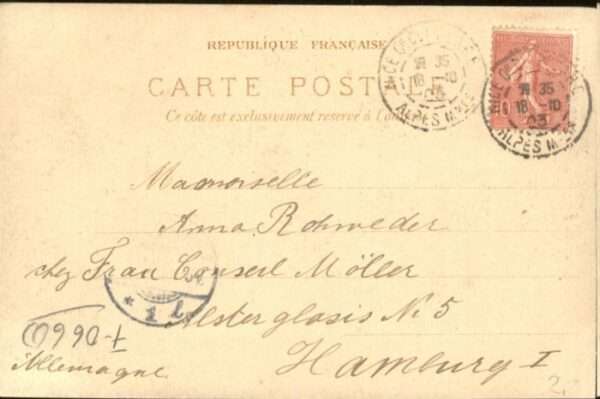 REPUBLIQUE FRANÇAISE
CARTE POSTALE
Ce côté est exclusivement réservé à l'adresse
NICE
18 35
18 10
03
ALPES Mmes
NICE
18 35
18 10
03
ALPES Mmes
Mamoiselle
Anna Rohweder
chez Frau Consul Möller
Alsterglasis No 5
Hamburg I
Allemagne
* 1 l